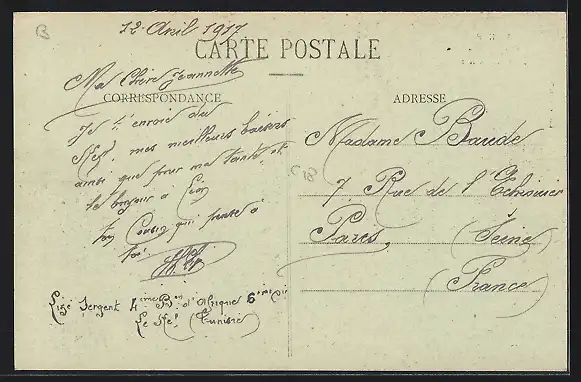 12 Avril 1917
CARTE POSTALE
Ma Chère Jeannette
CORRESPONDANCE
Je t'envoie du
Kef, mes meilleurs baisers
ainsi que pour ma tante, et
le bonjour à Léon
ton Cousin qui pense à
toi
Sergent 4ème Bon d'Afrique 6ème Cie
Le Kef (Tunisie)
ADRESSE
Madame Baude
7, Rue de l'Echiquier
Paris, (Seine)
(France)